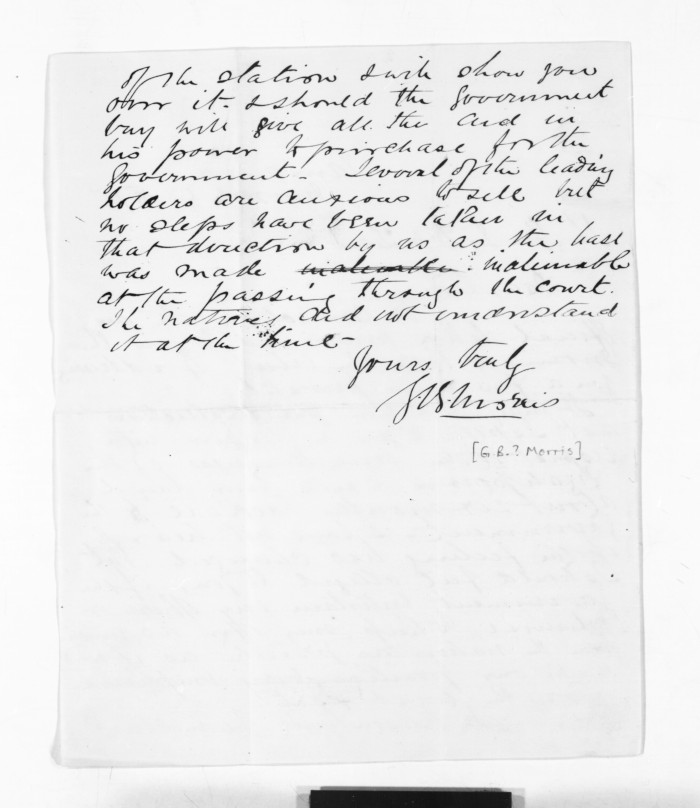 of the station & will show you
over it. & should the Government
buy will give all the aid in
his power to purchase for the
Government. Several of the leading
holders are anxious to sell but
no steps have been taken in
that direction by us as the
was made inalienable
at the passing through the court.
The natives did not understand
it at the time
Yours truly
G B Morris
[G. B. ? Morris]